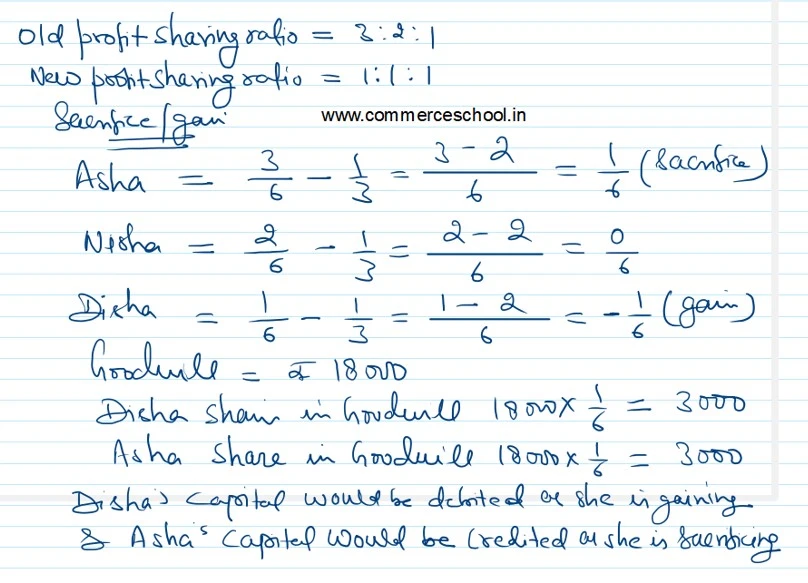 Old profit sharing ratio = 3:2:1
New profit sharing ratio = 1:1:1
Sacrifice/gain
www.commerceschool.in
Asha = 3/6 - 1/3 = 3-2/6 = 1/6 (Sacrifice)
Nisha = 2/6 - 1/3 = 2-2/6 = 0/6
Disha = 1/6 - 1/3 = 1-2/6 = -1/6 (gain)
Goodwill = ₹ 18000
Disha Share in Goodwill 18000 × 1/6 = 3000
Asha Share in Goodwill 18000 × 1/6 = 3000
Disha's Capital would be debited as she is gaining
& Asha's Capital would be Credited as she is sacrificing